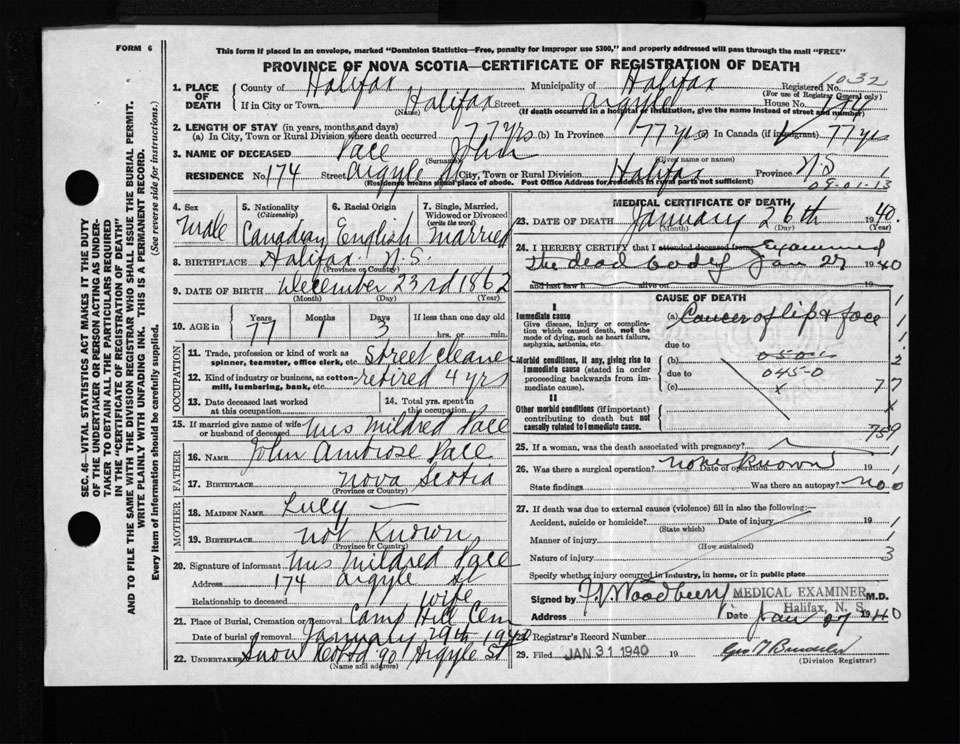 FORM 6
This form if placed in an envelope, marked "Dominion Statistics—Free, penalty for improper use $300," and properly addressed will pass through the mail "FREE"
PROVINCE OF NOVA SCOTIA—CERTIFICATE OF REGISTRATION OF DEATH
SEC. 46—VITAL STATISTICS ACT MAKES IT THE DUTY
OF THE UNDERTAKER OR PERSON ACTING AS UNDER-
TAKER TO OBTAIN ALL THE PARTICULARS REQUIRED
IN THE "CERTIFICATE OF REGISTRATION OF DEATH"
AND TO FILE THE SAME WITH THE DIVISION REGISTRAR WHO SHALL ISSUE THE BURIAL PERMIT.
WRITE PLAINLY WITH UNFADING INK. THIS IS A PERMANENT RECORD.
Every item of Information should be carefully supplied. (See reverse side for instructions.)
1. PLACE OF DEATH
County of Halifax Municipality of Halifax Registered No. 1032
(For use of Registrar General only)
If in City or Town Halifax Street Argyle House No. 174
(Name) (If death occurred in a hospital or institution, give the name instead of street and number)
2. LENGTH OF STAY (in years, months and days)
(a) In City, Town or Rural Division where death occurred 77 yrs (b) In Province 77 yrs (c) In Canada (if immigrant) 77 yrs
3. NAME OF DECEASED Pace John
(Surname) (Given name or names)
RESIDENCE No. 174 Street Argyle St City, Town or Rural Division Halifax Province N.S. 1
(Residence means usual place of abode. Post Office Address for residents in rural parts not sufficient) 09-01-13
4. Sex Male
5. Nationality (Citizenship) Canadian
6. Racial Origin English
7. Single, Married, Widowed or Divorced (write the word) Married
8. BIRTHPLACE Halifax N.S.
(Province or Country)
9. DATE OF BIRTH December 23rd 1862
(Month) (Day) (Year)
10. AGE in Years 77 Months 1 Days 3 If less than one day
hrs. or min.
OCCUPATION
11. Trade, profession or kind of work as spinner, teamster, office clerk, etc. Street Cleaner
12. Kind of industry or business, as cotton-mill, lumbering, bank, etc. retired 4 yrs
13. Date deceased last worked at this occupation
14. Total yrs. spent in this occupation
15. If married give name of wife or husband of deceased Mrs Mildred Pace
FATHER
16. NAME John Ambrose Pace
17. BIRTHPLACE Nova Scotia
(Province or Country)
MOTHER
18. MAIDEN NAME Lucy —
19. BIRTHPLACE not Known
(Province or Country)
20. Signature of informant Mrs Mildred Pace
Address 174 Argyle St
Relationship to deceased wife
21. Place of Burial, Cremation or Removal Camp Hill Cem
Date of burial or removal January 29th 1940
22. Undertaker Snow Co Ltd 90 Argyle St
(Name and address)
MEDICAL CERTIFICATE OF DEATH
23. DATE OF DEATH January 26th 1940
(Month) (Day) (Year)
24. I HEREBY CERTIFY that I attended deceased from Examined
the dead body Jan 27 1940
and last saw h alive on
CAUSE OF DEATH
I
Immediate cause
Give disease, injury or complication which caused death, not the mode of dying, such as heart failure, asphyxia, asthenia, etc.
(a) Cancer of lip & face
due to
Morbid conditions, if any, giving rise to immediate cause (stated in order proceeding backwards from immediate cause).
(b)
due to 045-0
(c)
II
Other morbid conditions (if important) contributing to death but not causally related to immediate cause.
1
1
1
2
77
x
759
25. If a woman, was the death associated with pregnancy? 1
26. Was there a surgical operation? none known Date of operation 19 1
State findings Was there an autopsy? no 0
27. If death was due to external causes (violence) fill in also the following:
Accident, suicide or homicide? Date of injury 19 1
(State which)
Manner of injury 1
(How sustained)
Nature of injury 3
Specify whether injury occurred in industry, in home, or in public place
Signed by F.V. Woodbury MEDICAL EXAMINER M.D.
Halifax, N. S.
Address Date Jan 27 1940
28. Registrar's Record Number
29. Filed JAN 31 1940 19
(Division Registrar)